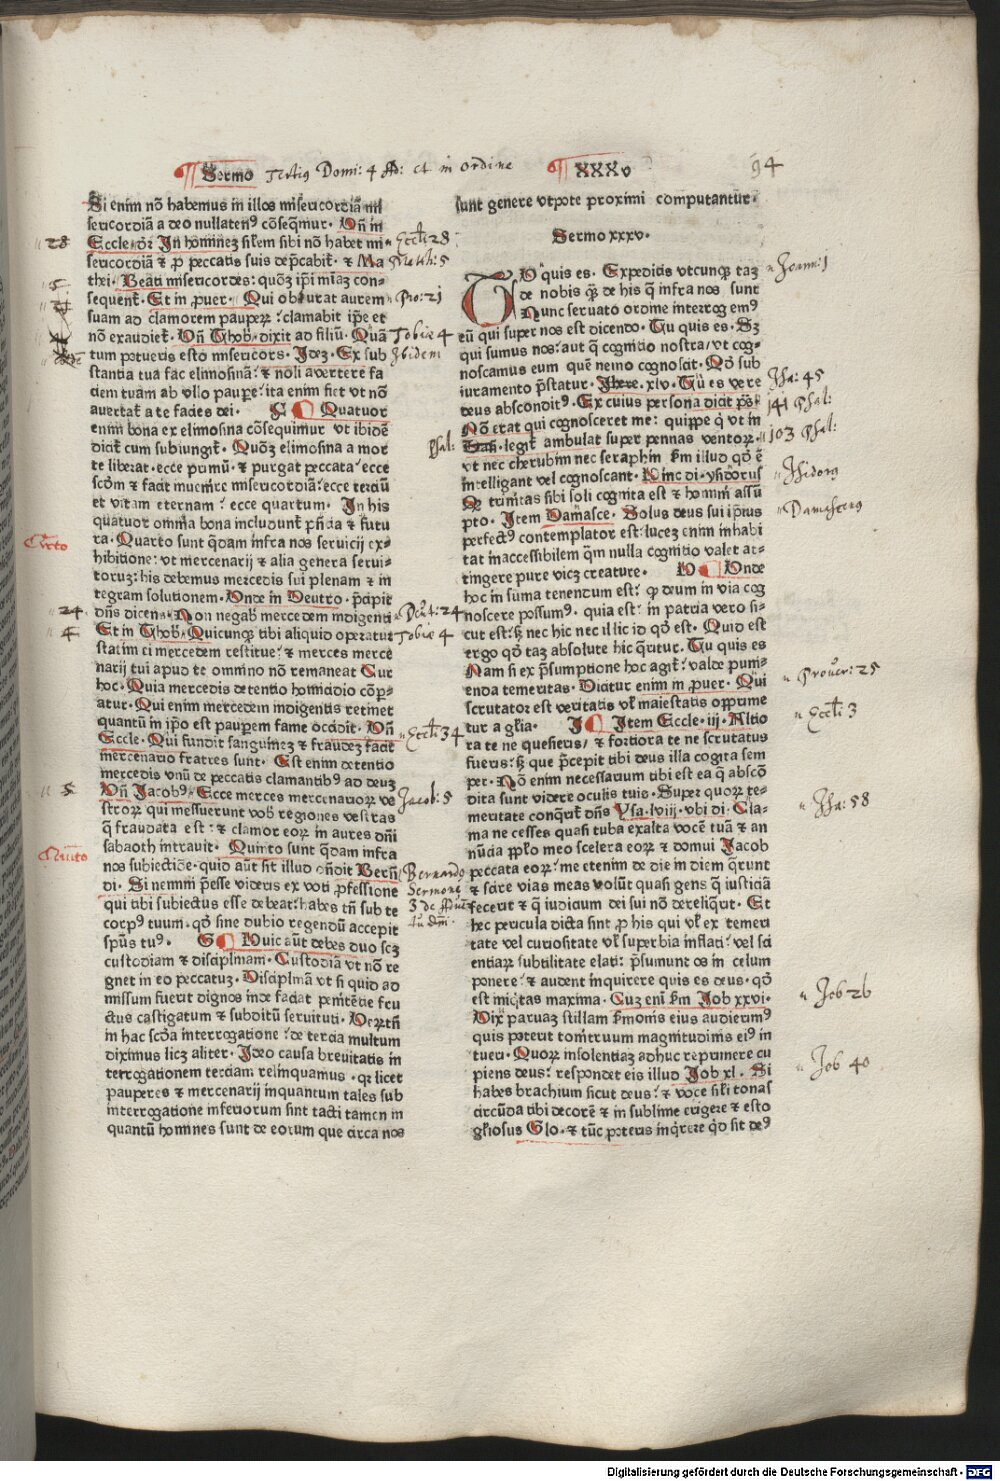 Sermo Tertius Domi: 4 Ad: et in ordine XXXv 94
Si enim nõ habemus in illos misericordiã mi
sericordiã a deo nullatenꝰ cõseq̃mur. Vñ in
Eccle. Jn hominez similem sibi nõ habet mi
sericordiã ⁊ ꝓ peccatis suis dep̃cabit̃. ⁊ Ma
thei. Beati misericordes: quõz ip̃i miãz con-
sequent̃. Et in ꝓuer. Qui obturat aurem
suam ad clamorem pauperꝝ clamabit ip̃e et
nõ exaudiet̃. Vñ Thob̃. dixit ad filiũ. Quã
tum potueris esto misericors. Jdez. Ex sub
stantia tua fac elimosinã: ⁊ noli avertere fa
ciem tuam ab vllo paupe: ita enim fiet vt nõ
auertat̃ a te facies dei. F Quatuor
enim bona ex elimosina cõsequimur vt ibidẽ
dicit̃ cum subiungit̃. Quõz elimosina a mor
te liberat. ecce primũ. ⁊ purgat peccata: ecce
scðm ⁊ facit inuenire misericordiã: ecce terciũ
et vitam eternam: ecce quartum. Jn his
quatuor omnia bona includunt̃ p̃ñtia ⁊ futu
ra. Quarto sunt q̃dam infra nos seruicij ex-
hibitione: vt mercenarij ⁊ alia genera serui-
toruz: his debemus mercedis sui plenam ⁊ in
tegram solutionem. Vnde in Deutro. p̃cipit
dñs dicens. Non negab̃ mercedem indigenti
Et in Thob̃. Quicunqꝫ tibi aliquid operatur
statim ei mercedem restitue: ⁊ merces merce
narij tui apud te omnino nõ remaneat Cur
hoc. Quia mercedis detentio homicidio cõp̱-
atur. Qui enim mercedem indigentis retinet
quantũ in ip̃o est paup̱em fame occidit. Vñ
Eccle. Qui fundit sanguinez ⁊ fraudez facit
mercenario fratres sunt. Est enim detentio
mercedis vnũ de peccatis clamantibꝰ ad deuz
Vñ Jacobꝰ. Ecce merces mercenarioꝝ ve
stroꝝ qui messuerunt vob̃ regiones vestras
q̃ fraudata est: ⁊ clamor eoꝝ in aures dñi
sabaoth intravit. Quinto sunt q̃dam infra
nos subiectiõe. quid aũt sit illud oñdit Berñ
di. Si nemini p̃esse videris ex voti ꝓfessione
qui tibi subiectus esse debeat: habes tñ sub te
corpꝰ tuum. qõ sine dubio regendũ accepit
spũs tuꝰ. G Huic aũt debes duo scz
custodiam ⁊ disciplinam. Custodiã vt nõ re
gnet in eo peccatuz. Disciplinã vt si quid ad
missum fuerit dignos inde faciat penitẽtie fru
ctus castigatum ⁊ subditũ seruituti. Veꝝtñ
in hac scða interrogatione: de tercia multum
diximus licz aliter. Jdeo causa breuitatis in
terrogationem terciam relinquamus. qꝛ licet
pauperes ⁊ mercenarij inquantum tales sub
interrogatione inferiorum sint tacti tamen in
quantũ homines sunt de eorum que circa nos
28
5
24
4
5
Quarto
Quinto
Eccl̃i 28
Matth: 5
Pro: 21
Tobie 4
Ibidem
Deut: 24
Tobie 4
Eccl̃i 34
Jacob: 5
Bernardꝰ
Sermone
3 de aduẽ
tu dñi.
sunt genere vtpote proximi computantur.
Sermo xxxv.
TV quis es. Expeditis vtcunqꝫ taz
de nobis qꝫ de his q̃ infra nos sunt
Nunc seruato ordine interrogemꝰ
eũ qui super nos est dicendo. Tu quis es. Sz
qui sumus nos: aut q̃ cognitio nostra: vt cog-
noscamus eum quẽ nemo cognoscit. Qõ sub
iuramento p̃statur. xlv. Tu es vere
deus absconditꝰ. Ex cuius persona dicit p̃s̃
Nõ erat qui cognosceret me: quippe q̇ vt in
legit̃ ambulat super pennas ventoꝝ.
vt nec cherubim nec seraphim s̃m illud qõ ẽ
intelligant vel cognoscant. Hinc di. ysidorus
Qꝫ trinitas sibi soli cognita est ⁊ homini assũ
pto. Jtem Damasce. Solus deus sui ipsius
perfectꝰ contemplator est: lucez enim inhabi
tat inaccessibilem q̃m nulla cognitio valet at-
tingere pure vicz creature. H Vnde
hoc in suma tenendum est: ꝙ deum in via cog
noscere possumꝰ. quia est: in patria vero si-
cut est: sz nec hic nec illic id qõ est. Quid est
ergo qõ taz absolute hic q̃ritur. Tu quis es
Nam si ex p̃sumptione hoc agit̃: valde puni-
enda temeritas. Dicitur enim in ꝓuer. Qui
scrutator est veritatis vl̃ maiestatis opprime
tur a gl̃ia. J Jtem Eccle. iij. Altio
ra te ne quesieris/ ⁊ fortiora te ne scrutatus
fueris: sz que p̃cepit tibi deus illa cogita sem
per. Nõ enim necessarium tibi est ea q̃ abscõ
dita sunt videre oculis tuis. Super quoꝝ te-
meritate conq̃rit̃ dñs Ysa. lviij. vbi di. Cla-
ma ne cesses quasi tuba exalta vocẽ tuã ⁊ an
nũcia ppl̃o meo scelera eoꝝ ⁊ domui Jacob
peccata eoꝝ. me etenim de die in diem q̃runt
⁊ scire vias meas volũt quasi gens q̃ iusticiã
fecerit ⁊ q̃ iudicium dei sui nõ dereliq̃rit. Et
hec pericula dicta sint ꝓ his qui vl̃ ex temeri
tate vel curiositate vl̃ superbia inflati: vel sci
entiaꝝ subtilitate elati: p̃sumunt os in celum
ponere: ⁊ audent inquirere quis es deus. qõ
est iniq̃tas maxima. Cuz eni s̃m Job xxvi.
Vix paruaz stillam s̃monis eius audierimꝰ
quis poterit tonitruum magnitudinis eiꝰ in
tueri. Quoꝝ insolentiaz adhuc reprimere cu
piens deus: respondet eis illud Job xl. Si
habes brachium sicut deus: ⁊ voce sil̃i tonas
circũda tibi decorẽ ⁊ in sublime erigere ⁊ esto
gl̃iosus Glo. ⁊ tũc poteris inq̃rere qõ sit deꝰ
Joann: 1
Jsa: 45
141 Psal:
Psal:
103 Psal:
Jsidorꝰ
Damascenꝰ
Prouer: 25
Eccl̃i 3
Jsa: 58
Job 26
Job 40
Digitalisierung gefördert durch die Deutsche Forschungsgemeinschaft - DFG